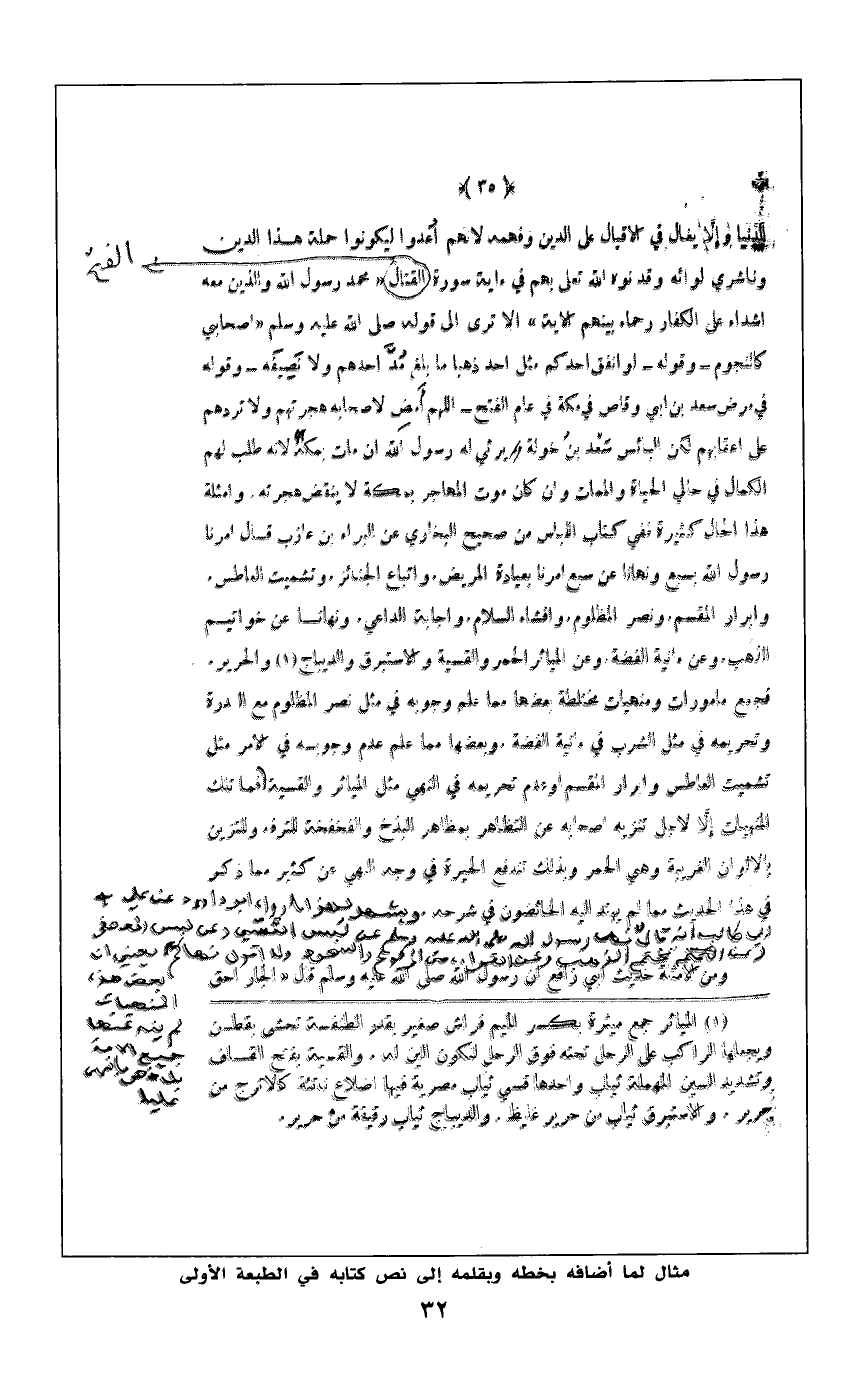 ﴿ ٣٥ ﴾
للدنيا وإلَّا يفال في الاقبال على الدين وفهمه لانهم أُعدوا ليكونوا حملة هـذا الديـن
الفتح
وناشري لوائه وقد نوه الله تعلى بهم في ءاية سورة القتال « محمد رسول الله والذين معه
اشداء على الكفار رحماء بينهم الاية » الا ترى الى قوله صلى الله عليه وسلم « اصحابي
كالنجوم ــ وقوله ــ لو انفق احدكم مثل احد ذهبا ما بلغ مُدَّ احدهم ولا نَصِيفَه ــ وقوله
في مرض سعد بن ابي وقاص في مكة في عام الفتح ــ اللهم أَمض لاصحابه هجرتهم ولا تردهم
على اعقابهم لكن البائس سَعْد بنُ خولة // يرثي له رسول الله ان مات بمكة" لانه طلب لهم
الكمال في حالي الحياة والممات وان كان موت المهاجر بمكة لا ينقض هجرته . وامثلة
هذا الحال كثيرة ففي كتاب اللباس من صحيح البخاري عن البراء بن عازب قـال امرنا
رسول الله بسبع ونهانا عن سبع امرنا بعيادة المريض . واتباع الجنائز . وتشميت العاطس .
وابرار المقسم . ونصر المظلوم . وافشاء السلام . واجابة الداعي . ونهانـا عن خواتيـم
الذهب . وعن ءانية الفضة . وعن المياثر الحمر والقسية والاستبرق والديباج (١) والحرير .
فجمع مامورات ومنهيات مختلطة بعضها مما علم وجوبه في مثل نصر المظلوم مع القدرة
وتحريمه في مثل الشرب في ءانية الفضة . وبعضها مما علم عدم وجوبـه في الامر مثل
تشميت العاطس وابرار المقسم اوعدم تحريمه في النهي مثل المياثر والقسية (فما تلك
المنهيات إلَّا لاجل تنزيه اصحابه عن التظاهر بمظاهر البذخ والفخفخة للترفه وللتزين
بالالوان الغريبة وهي الحمر وبذلك تندفع الحيرة في وجه النهي عن كثير مما ذكر
في هذا الحديث مما لم يهتد اليه الخائضون في شرحه . ويشهد لهذا ما رواه ابو داوود عن علي
ابن ابي طالب أنه قال نهاني رسول الله صلى الله عليه وسلم عن لبس القسّي وعن لبس المعصفر
وعن التختم بالذهب وعن القراءة في الركوع والسجود ولا أقول نهاكم" يعني ان
بعض هذه
المنهيات
لم ينه عنها
جميع الامة
بل خص بالنهي
عليا
ومن الامثلة حديث ابي رافع ان رسول الله صلى الله عليه وسلم قال « الجار احق
(١) المياثر جمع ميثرة بكسر الميم فراش صغير بقدر الطنفسة تحشى بقطـن
ويجعلها الراكب على الرحل تحته فوق الرحل لتكون الين له . والقسية بفتح القـاف
وتشديد السين المهملة ثياب واحدها قسي ثياب مصرية فيها اضلاع ناتئة كالاترج من
حرير . والاستبرق ثياب من حرير غليظ . والديباج ثياب رقيقة من حرير .
مثال لما أضافه بخطه وبقلمه إلى نص كتابه في الطبعة الأولى
٣٢